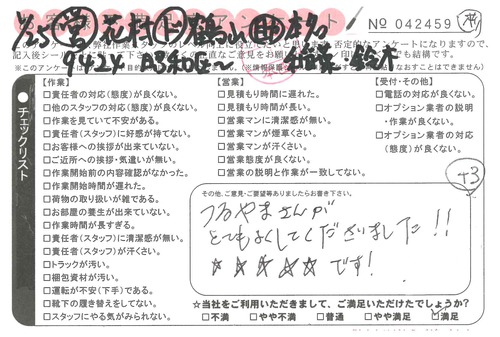 No 042459
記入後シール
チェックリスト
【作業】
□責任者の対応(態度)が良くない。
□他のスタッフの対応(態度)が良くない。
□作業を見ていて不安がある。
□責任者(スタッフ)に好感が持てない。
□お客様への挨拶が出来ていない。
□ご近所への挨拶・気遣いが無い。
□作業開始前の内容確認がなかった。
□作業開始時間が遅れた。
□荷物の取り扱いが雑である。
□お部屋の養生が出来ていない。
□作業時間が長すぎる。
□責任者(スタッフ)に清潔感が無い。
□責任者(スタッフ)が汗くさい。
□トラックが汚い。
□梱包資材が汚い。
□運転が不安(下手)である。
□靴下の履き替えをしてない。
□スタッフにやる気がみられない。
【営業】
□見積もり時間に遅れた。
□見積もり時間が長い。
□営業マンに清潔感が無い。
□営業マンが煙草くさい。
□営業マンが汗くさい。
□営業態度が良くない。
□営業の説明と作業が一致してない。
【受付・その他】
□電話の対応が良くない。
□オプション業者の説明
・作業が良くない。
□オプション業者の対応
(態度)が良くない。
+3
その他、ご意見・ご要望等ありましたらお書き下さい。
つるやまさんが
とてもよくしてくださいました!!
★★★★★です!
☆当社をご利用いただきまして、ご満足いただけたでしょうか?
□不満 □やや不満 □普通 □やや満足 □満足